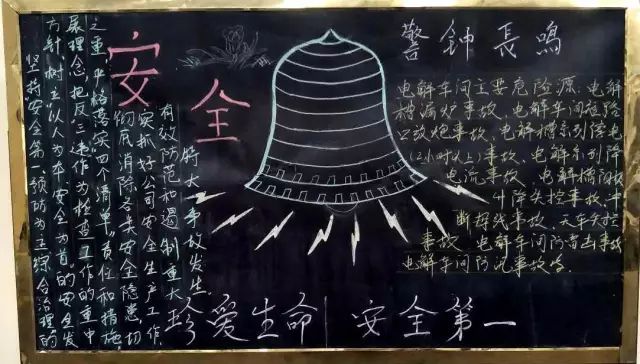 安全
警钟長鳴
坚持"安全第一、预防为主、综合治理的
方针,树立"以人为本,安全为首"的安全发
展理念,把反三违作为检查工作的重中
之重,严格落实"四个清单"责任和措施,
彻底消除各类安全隐患切
实抓好公司安全生产工作,
有效防范和遏制重大
特大事故发生.
电解车间主要危险源:电解
槽漏炉事故、电解车间短路
口放炮事故、电解槽系列停电
(2小时以上)事故、电解系列降
电流事故、电解槽阳极
升降失控事故、中
断线事故、天车失控
事故、电解车间防雷击事故
电解车间防汛事故等.
珍爱生命 安全第一